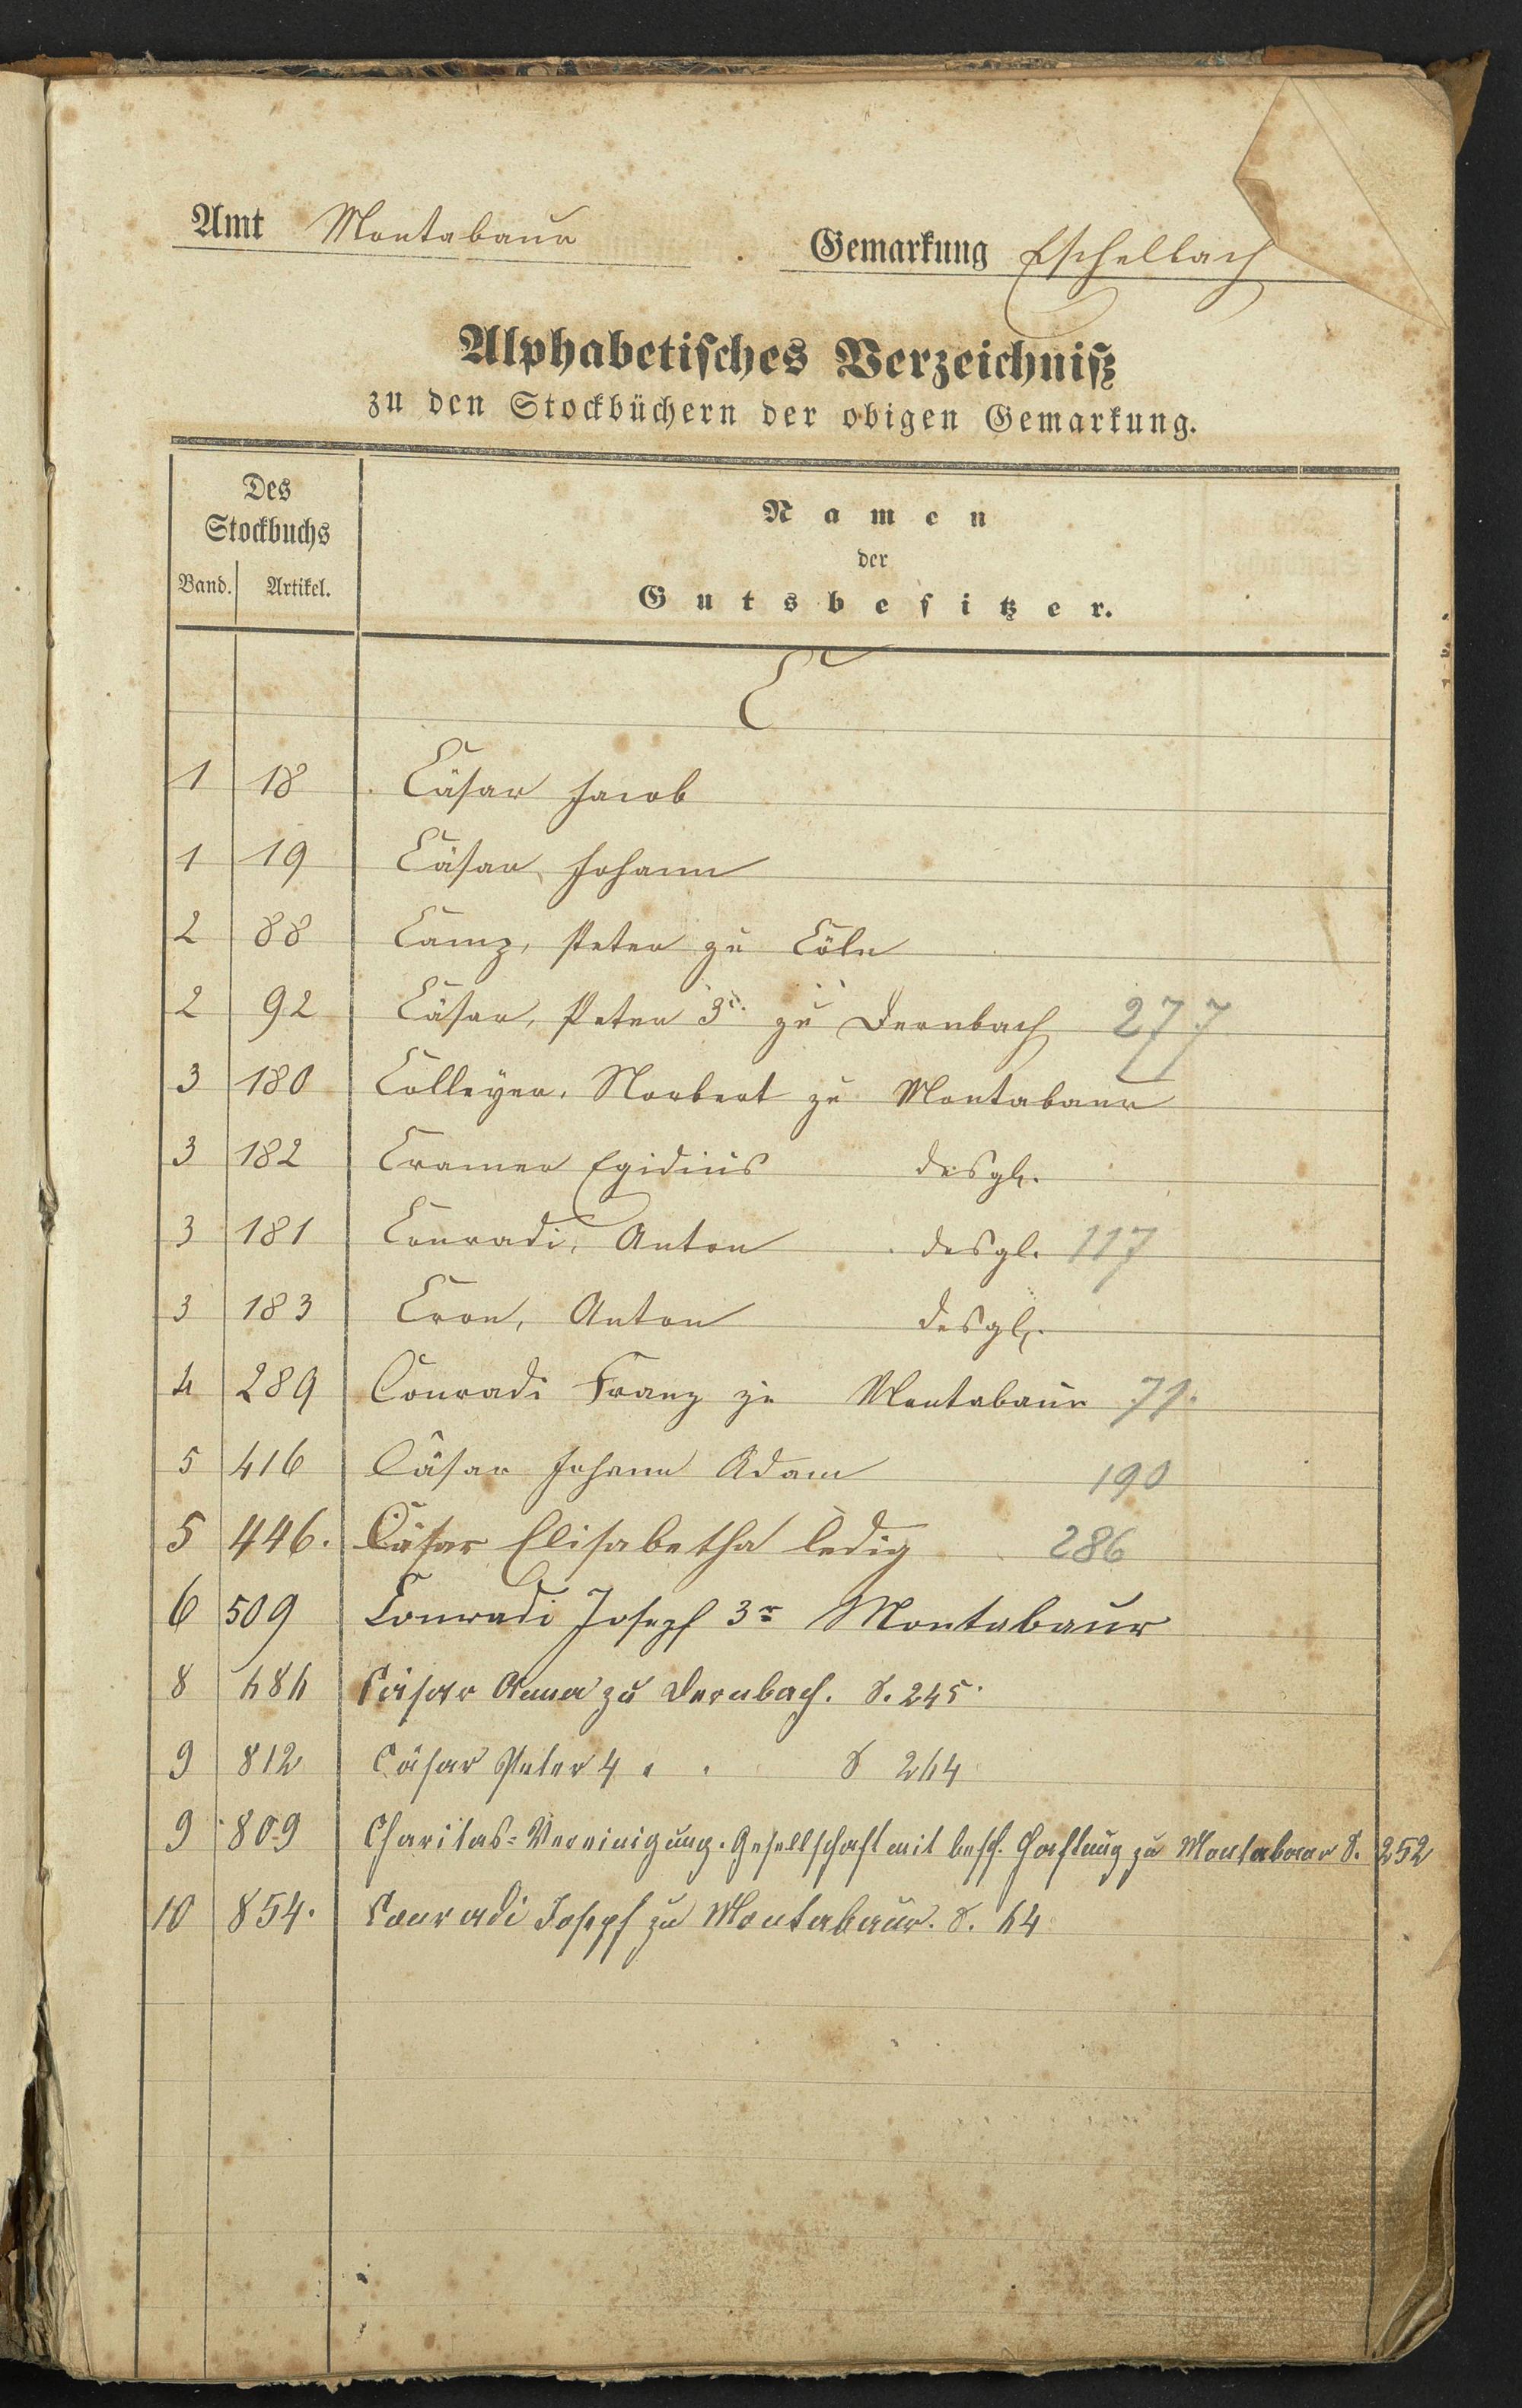 Amt Montabaur
Gemarkung Eschelbach
Alphabetisches Verzeichniß
zu den Stockbüchern der obigen Gemarkung.
Des Stockbuchs
Namen
der
Band. Artikel.
Gutsbesitzer.
C
1 18 Cäsar Jacob
1 19 Cäsar, Johann
2 88 Camz, Peter zu Cöln
2 92 Cäsar, Peter 3r. zu Dernbach 277
3 180 Colleyer, Norbert zu Montabaur
3 182 Cramer Egidius desgl.
3 181 Conradi, Anton desgl. 117
3 183 Cron, Anton desgl.
4 289 Conradi Franz zu Montabaur 71.
5 416 Cäsar Johann Adam 190
5 446. Cäsar Elisabetha ledig 286
6 509 Conradi Joseph 3r Montabaur
8 Cäsar Anna zu Dernbach. S. 245.
9 812 Cäsar Peter 4 " " S 264
9 809 Charitas-Vereinigung. Gesellschaft mit besch. Haftung zu Montabaur S. 252
10 854. Conradi Joseph zu Montabaur. S. 64